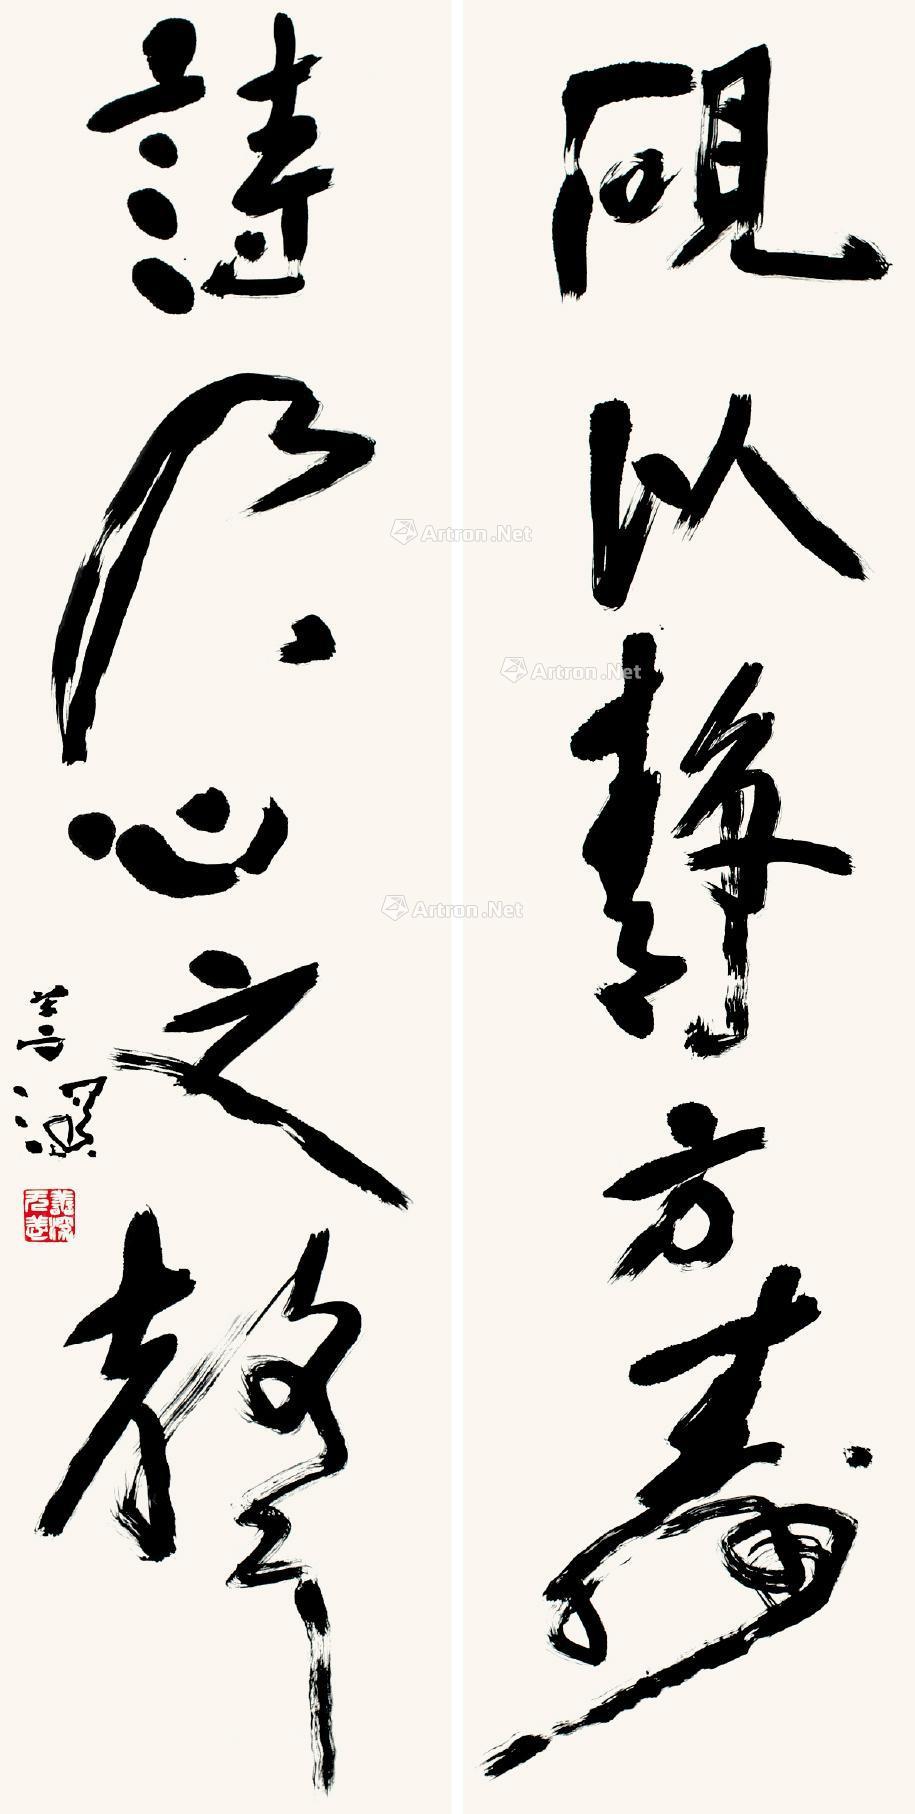 砚以静方寿
詩乃心之聲
善深
Artron.Net
Artron.Net
Artron.Net